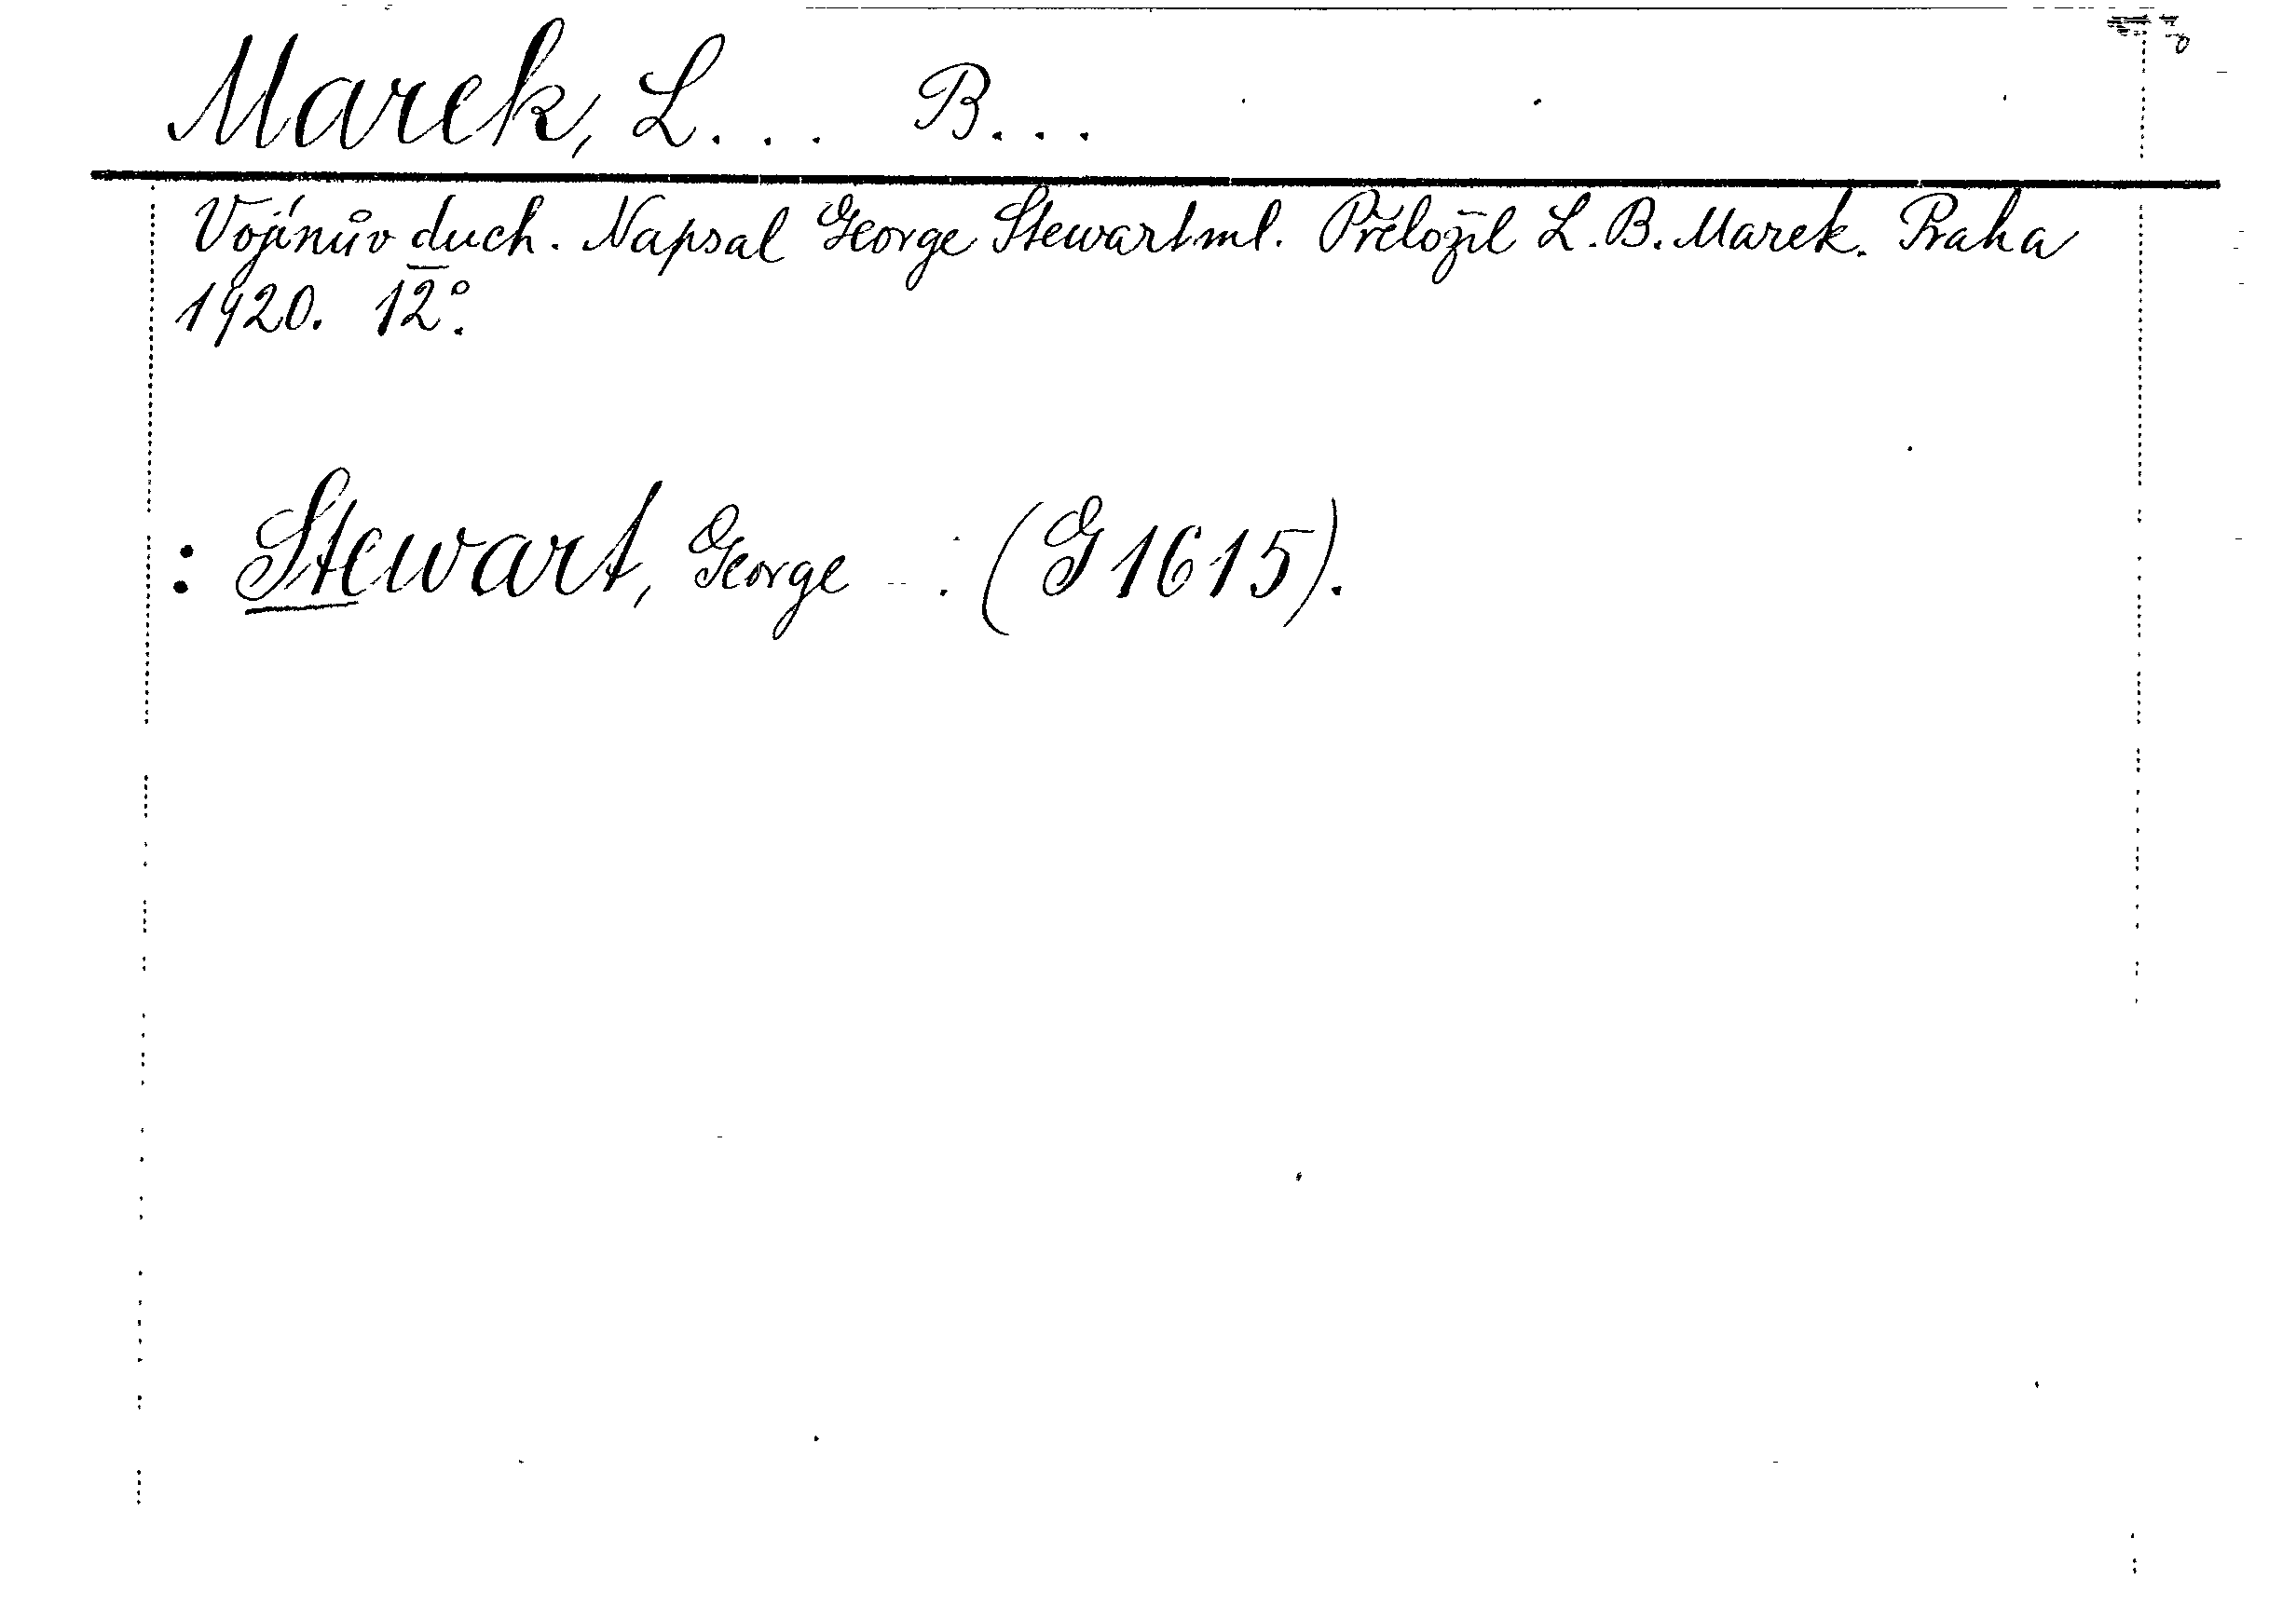 Marek, L... B...
Vojínův duch. Napsal George Stewart ml. Přeložil L. B. Marek. Praha
1920. 12°.
: Stewart, George . (G 1615).